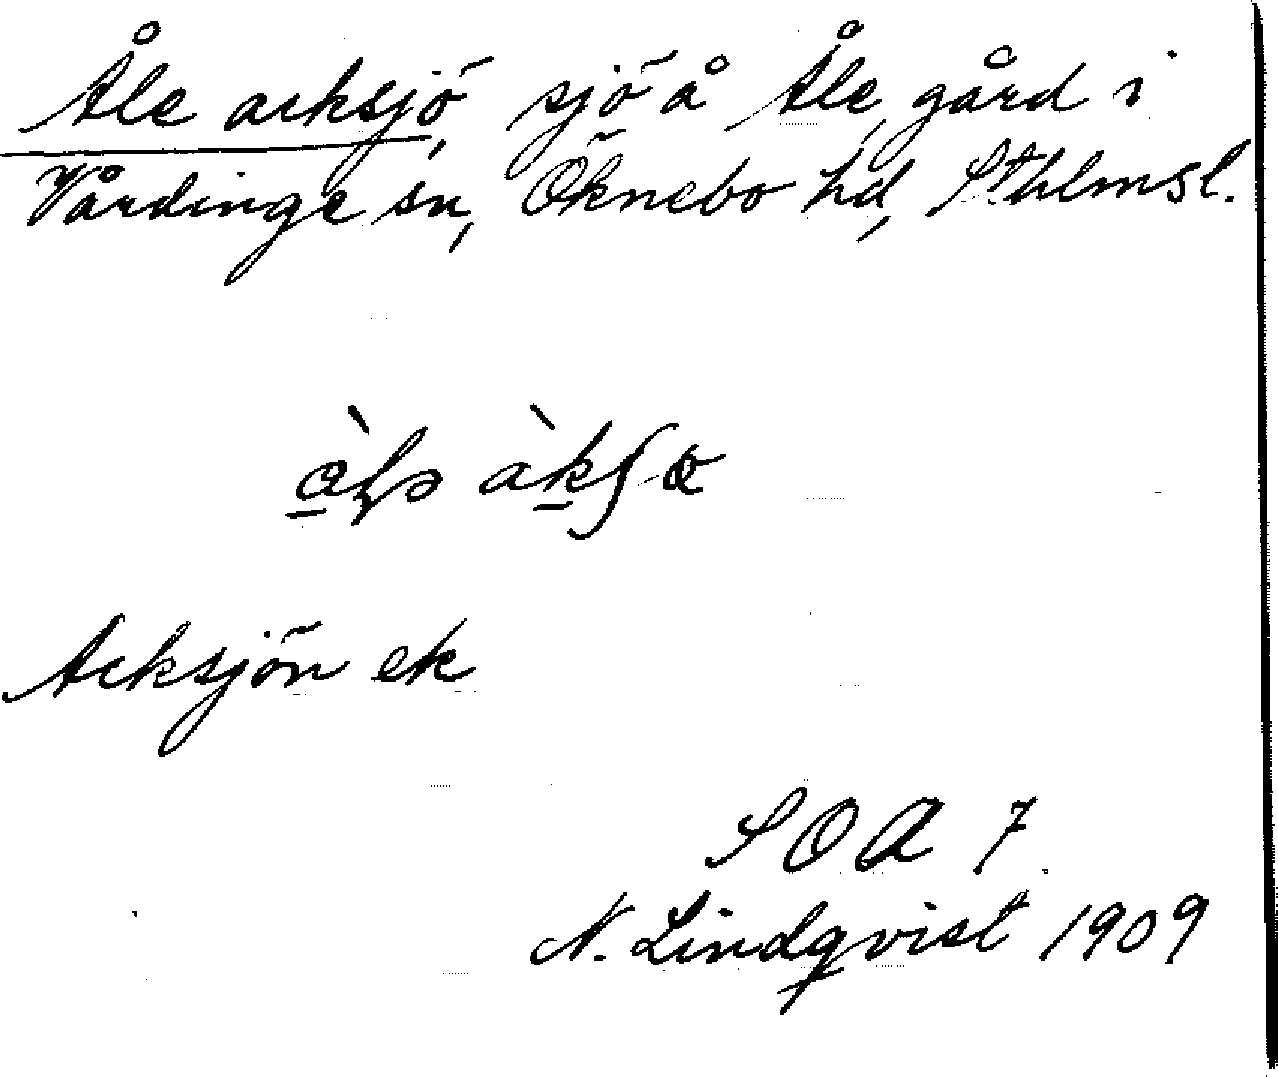 Åle acksjö, sjö å Åle, gård i
Vårdinge sn, Öknebo hd, Sthlmsl.
Acksjön ek
SOA 7.
N. Lindqvist 1909